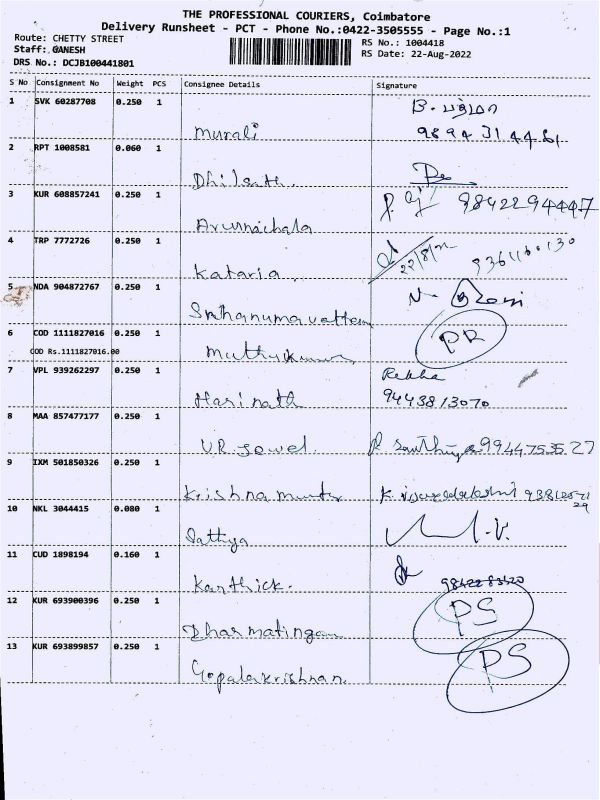 THE PROFESSIONAL COURIERS, Coimbatore
Delivery Runsheet - PCT - Phone No.:0422-3505555 - Page No.:1
Route: CHETTY STREET
RS No.: 1004418
Staff: GANESH
RS Date: 22-Aug-2022
DRS No.: DCJB100441801
S No Consignment No Weight PCS Consignee Details Signature
1 SVK 60287708 0.250 1 Murali B. பத்மா
9894314461
2 RPT 1008581 0.060 1 Dhilsath
3 KUR 608857241 0.250 1 Arunachala 9842294447
4 TRP 7772726 0.250 1 Kataria 22/8/22
5 NDA 904872767 0.250 1
6 COD 1111827016 0.250 1 Muthukumar PR
COD Rs.1111827016.00
7 VPL 939262297 0.250 1 Harinath Rekha
9443813070
8 MAA 857477177 0.250 1 VR Jewel. 9944753527
9 IXM 501850326 0.250 1 Krishna
10 NKL 3044415 0.080 1 Sathya
11 CUD 1898194 0.160 1 Karthick.
12 KUR 693900396 0.250 1 Dharmalingam PS
13 KUR 693899857 0.250 1 Gopalakrishnan PS